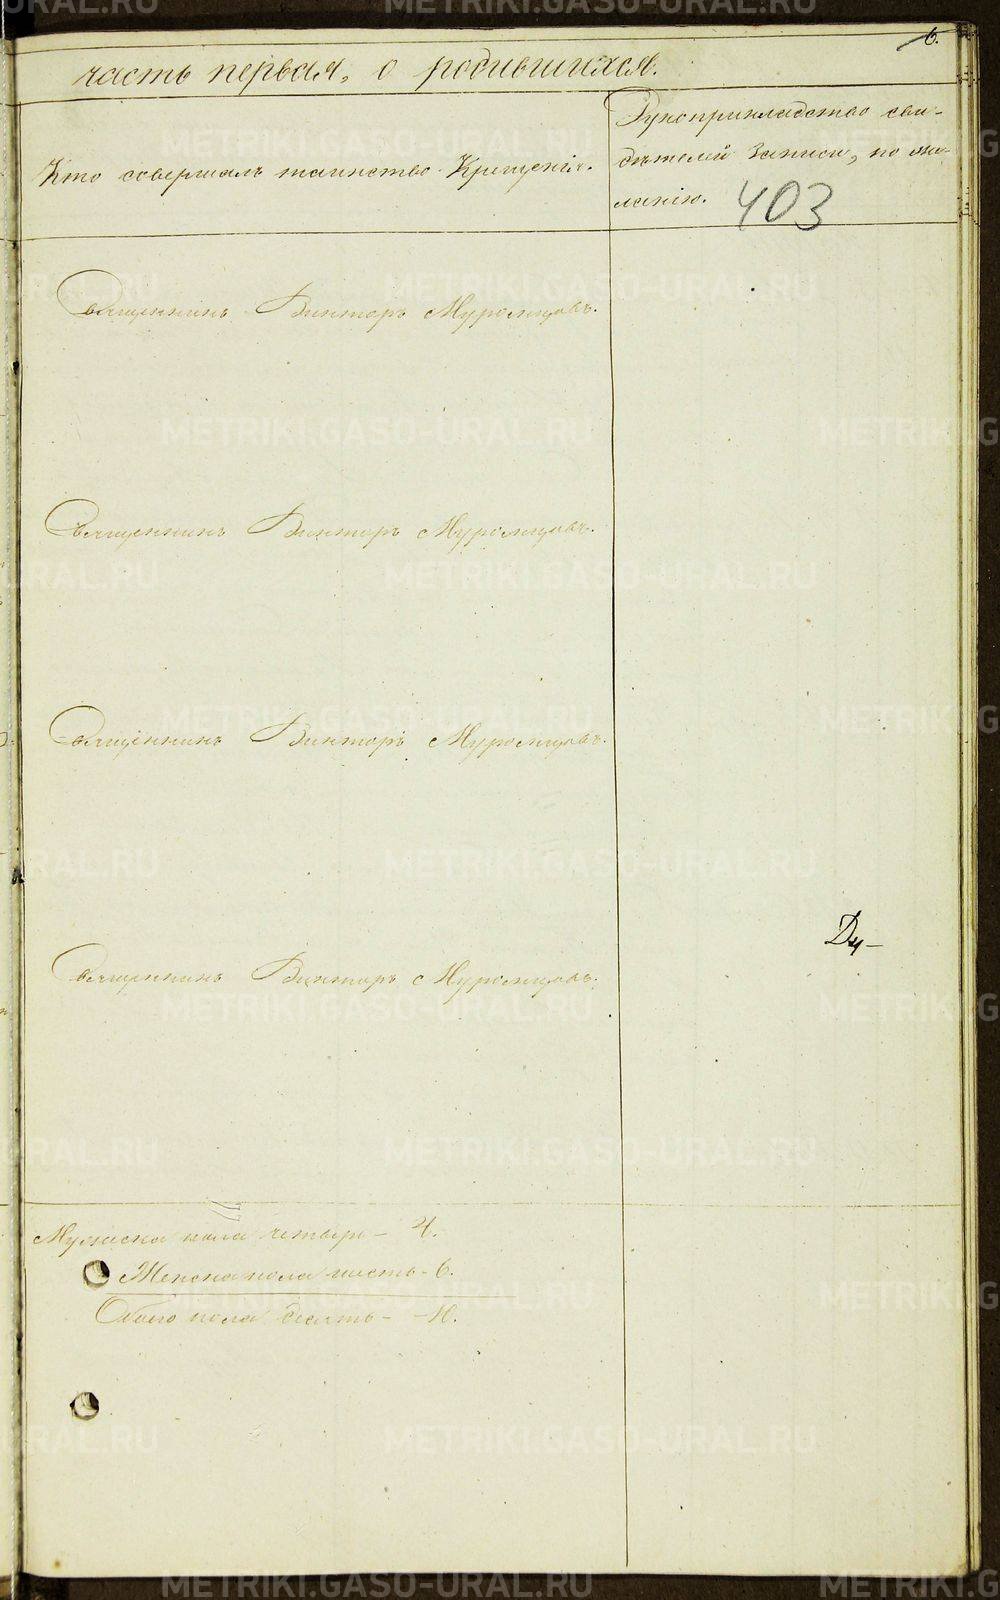 6.
часть первая, о родившихся.
Кто совершалъ таинство Крещенія.
Рукоприкладство сви-
дѣтелей записи, по же-
ланію.
403
Священникъ Викторъ Муромцовъ.
Священникъ Викторъ Муромцовъ.
Священникъ Викторъ Муромцовъ.
Ду-
Священникъ Викторъ Муромцовъ.
Мужска пола четыре - 4.
Женска пола шесть - 6.
Обоего пола десять - 10.
METRIKI.GASO-URAL.RU